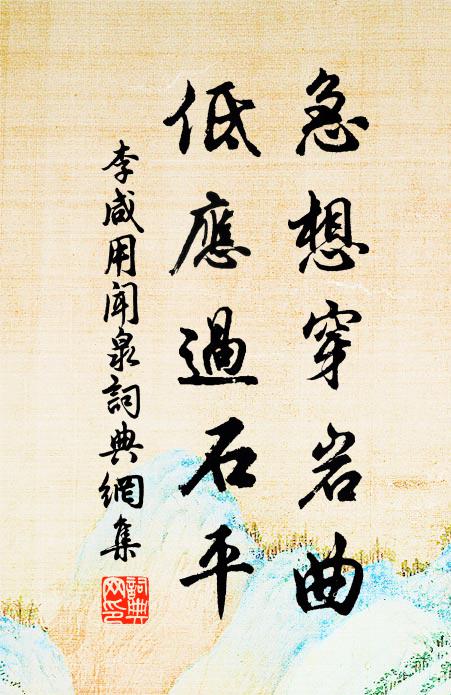 急想穿岩曲
低應過石平
李咸用聞泉詞典網集
詞典
网印